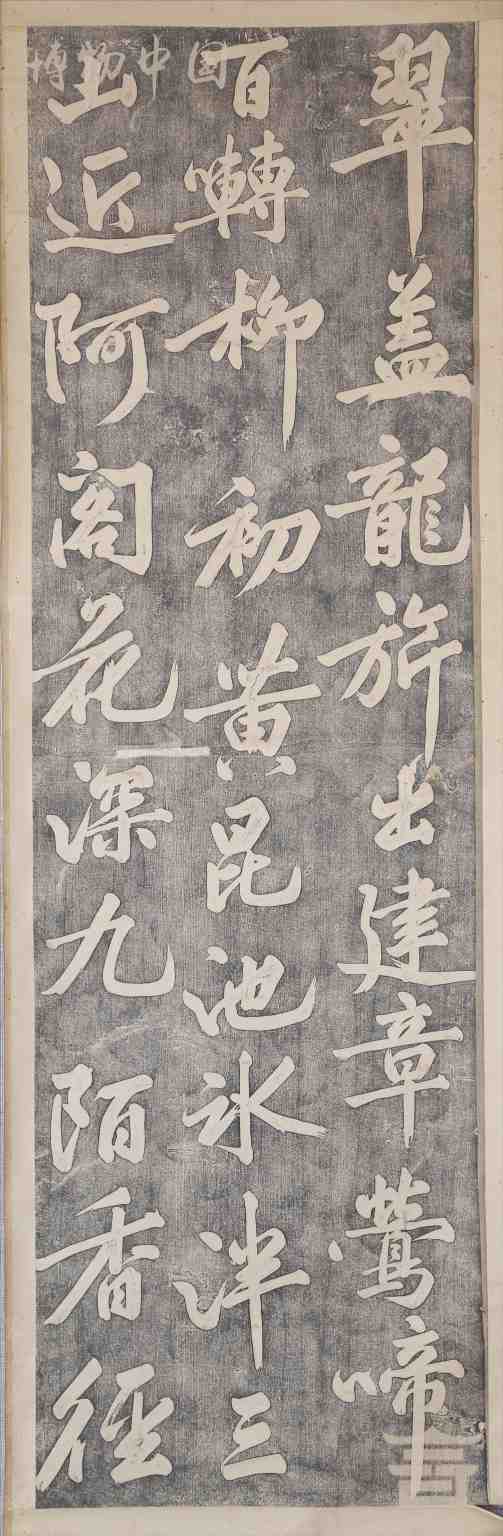 翠盖龍旂出建章鶯啼
百囀柳初黄昆池氷泮三
山近阿閣花深九陌香徑
博物中国